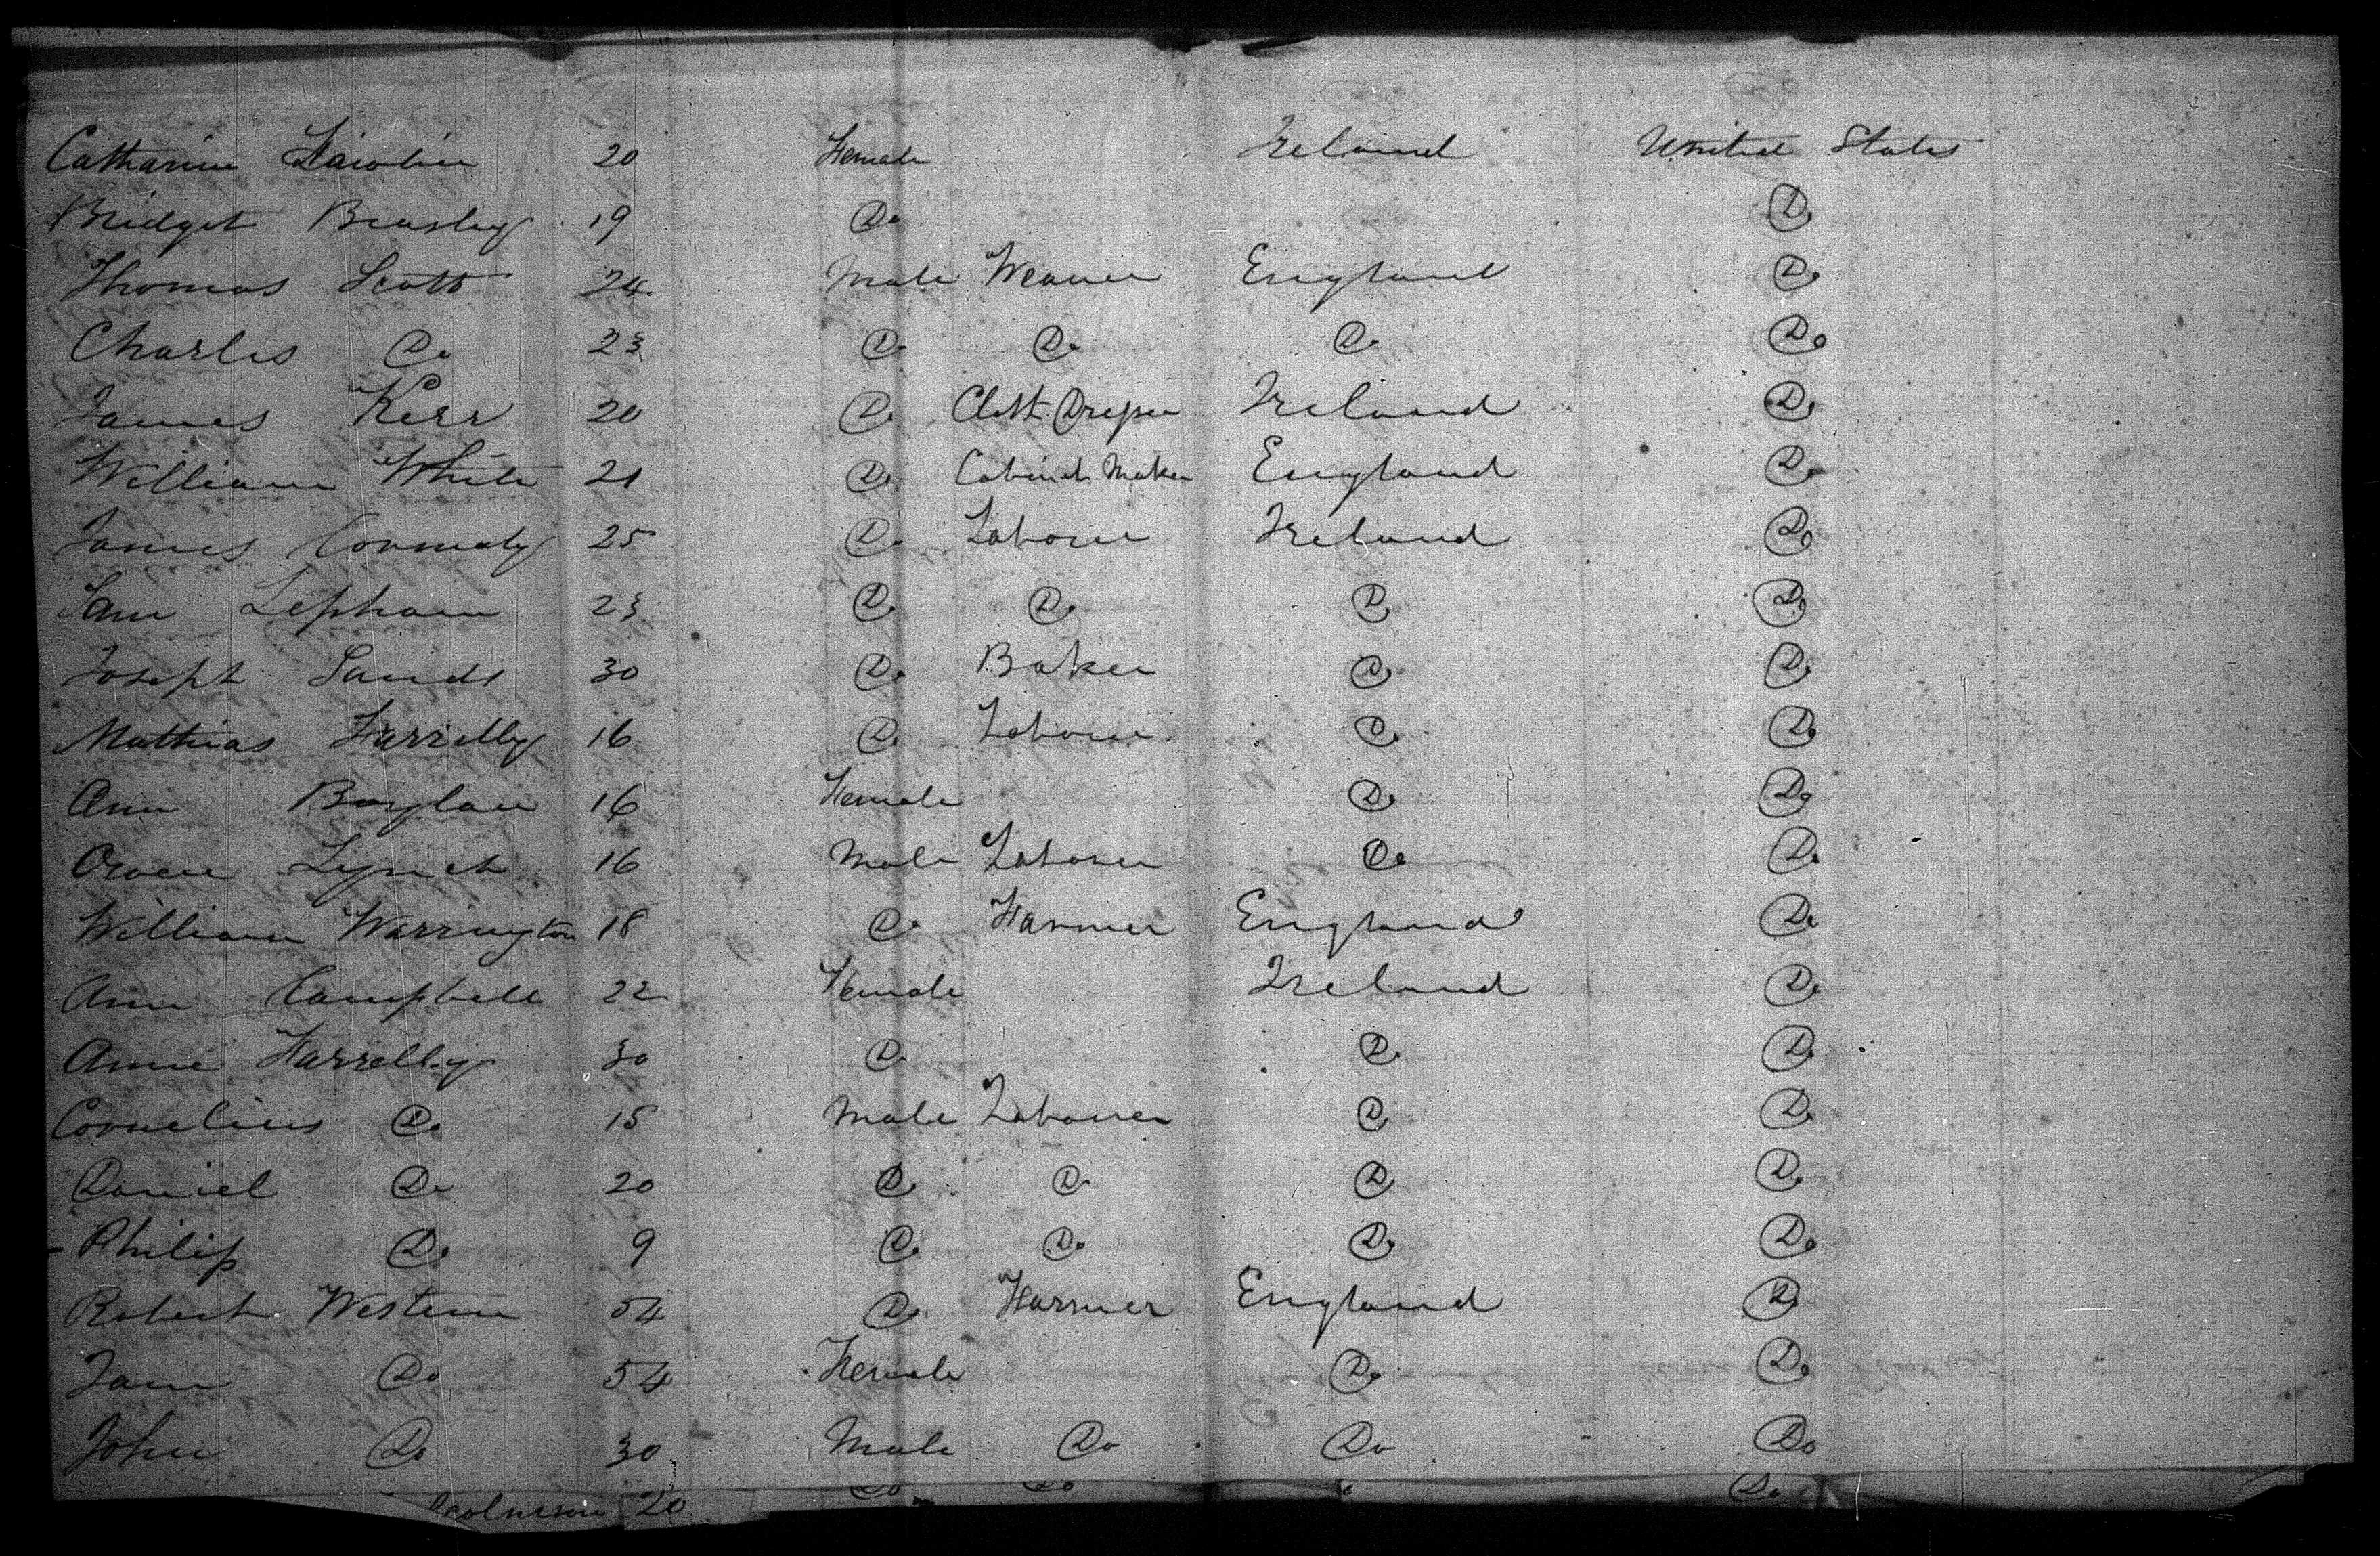 Catharine 20 Female Ireland United States
Bridget Beasley 19 Do Do
Thomas Scott 24 Male Weaver England Do
Charles Do 23 Do Do Do Do
James Kerr 20 Do Ireland Do
William White 21 Do Cabinet Maker England Do
James Cormudy 25 Do Laborer Ireland Do
Lepham 23 Do Do Do Do
Joseph Sands 30 Do Baker Do Do
Mathias Farrelly 16 Do Laborer Do Do
Ann Boylan 16 Female Do Do
Owen Lynch 16 Male Laborer Do Do
William Warrington 18 Do Farmer England Do
Ann Campbell 22 Female Ireland Do
Annie Farrelly 30 Do Do Do
Cornelius Do 15 Male Labourer Do Do
Daniel Do 20 Do Do Do Do
Philip Do 9 Do Do Do Do
Robert Western 54 Do Farmer England Do
Jane Do 54 Female Do Do
John Do 30 Male Do Do Do
20 Do Do Do